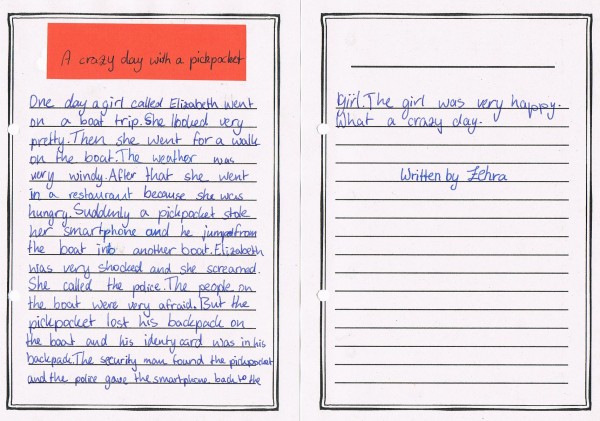 A crazy day with a pickpocket
One day a girl called Elizabeth went
on a boat trip. She looked very
pretty. Then she went for a walk
on the boat. The weather was
very windy. After that she went
in a restaurant because she was
hungry. Suddenly a pickpocket stole
her smartphone and he jumpt from
the boat into another boat. Elizabeth
was very shocked and she screamed.
She called the police. The people on
the boat were very afraid. But the
pickpocket lost his backpack on
the boat and his identy card was in his
backpack. The security man found the pickpocket
and the police gave the smartphone back to the
girl. The girl was very happy.
What a crazy day.
Written by Zehra